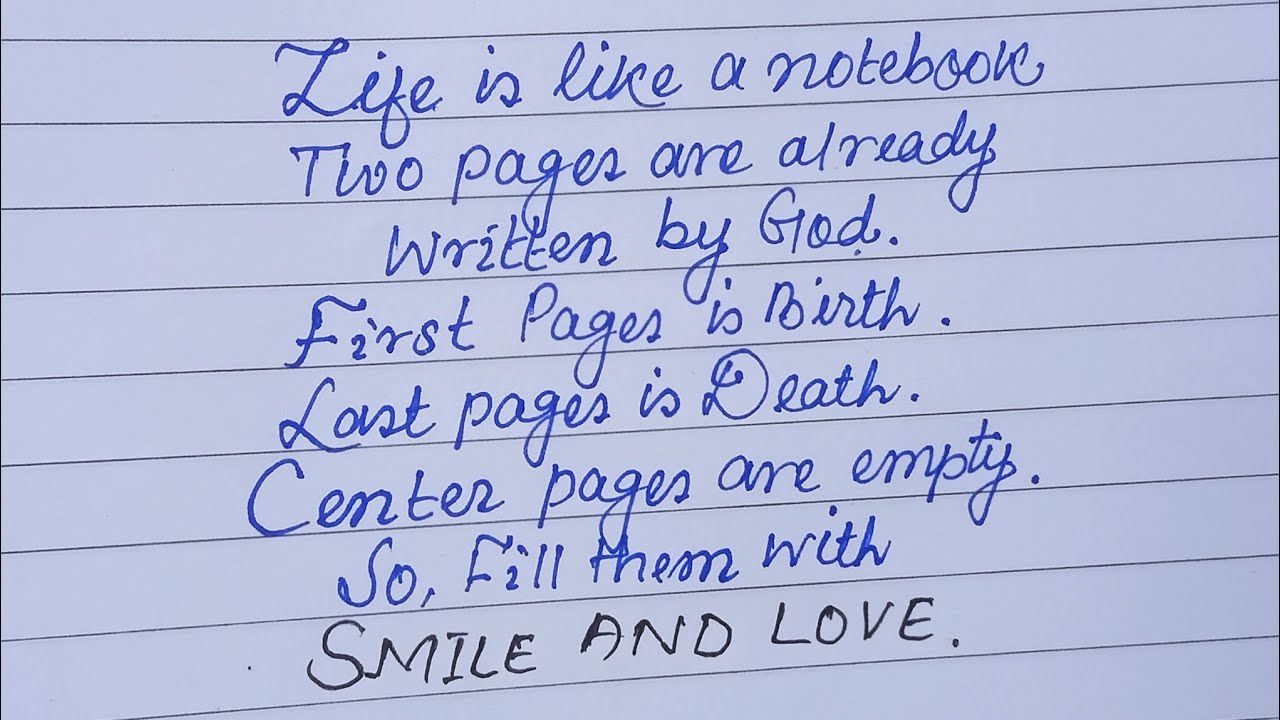 Life is like a notebook
Two pages are already
written by God.
First Pages is Birth.
Last pages is Death.
Center pages are empty.
So, Fill them with
SMILE AND LOVE.